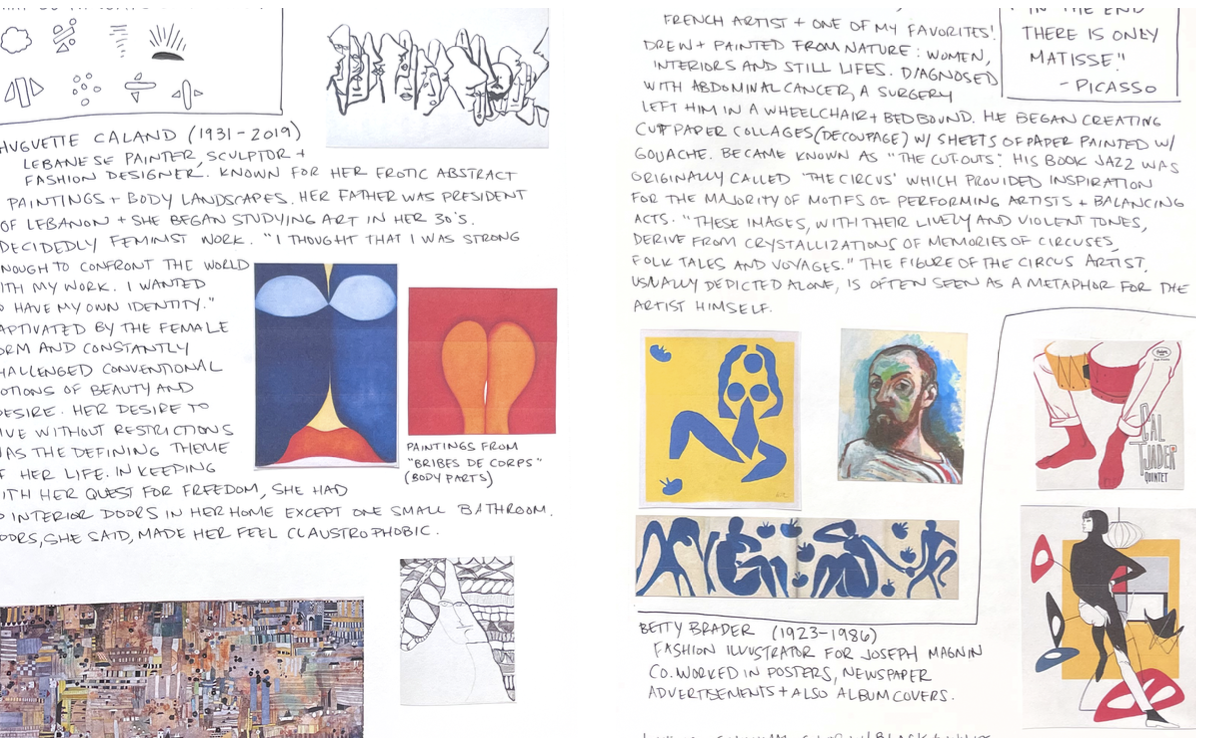 HUGUETTE CALAND (1931-2019)
LEBANESE PAINTER, SCULPTOR +
FASHION DESIGNER. KNOWN FOR HER EROTIC ABSTRACT
PAINTINGS + BODY LANDSCAPES. HER FATHER WAS PRESIDENT
OF LEBANON + SHE BEGAN STUDYING ART IN HER 30'S.
DECIDEDLY FEMINIST WORK. "I THOUGHT THAT I WAS STRONG
NOUGH TO CONFRONT THE WORLD
ITH MY WORK. I WANTED
O HAVE MY OWN IDENTITY."
APTIVATED BY THE FEMALE
ORM AND CONSTANTLY
HALLENGED CONVENTIONAL
OTIONS OF BEAUTY AND
ESIRE. HER DESIRE TO
IVE WITHOUT RESTRICTIONS
WAS THE DEFINING THEME
F HER LIFE. IN KEEPING
ITH HER QUEST FOR FREEDOM, SHE HAD
O INTERIOR DOORS IN HER HOME EXCEPT ONE SMALL BATHROOM.
OORS, SHE SAID, MADE HER FEEL CLAUSTROPHOBIC.
PAINTINGS FROM
"BRIBES DE CORPS"
(BODY PARTS)
FRENCH ARTIST + ONE OF MY FAVORITES!
DREW + PAINTED FROM NATURE: WOMEN,
INTERIORS AND STILL LIFES. DIAGNOSED
WITH ABDOMINAL CANCER, A SURGERY
LEFT HIM IN A WHEELCHAIR + BEDBOUND. HE BEGAN CREATING
CUT PAPER COLLAGES (DECOUPAGE) W/ SHEETS OF PAPER PAINTED W/
GOUACHE. BECAME KNOWN AS "THE CUT-OUTS". HIS BOOK JAZZ WAS
ORIGINALLY CALLED 'THE CIRCUS' WHICH PROVIDED INSPIRATION
FOR THE MAJORITY OF MOTIFS OF PERFORMING ARTISTS + BALANCING
ACTS. "THESE IMAGES, WITH THEIR LIVELY AND VIOLENT TONES,
DERIVE FROM CRYSTALLIZATIONS OF MEMORIES OF CIRCUSES,
FOLK TALES AND VOYAGES." THE FIGURE OF THE CIRCUS ARTIST,
USUALLY DEPICTED ALONE, IS OFTEN SEEN AS A METAPHOR FOR THE
ARTIST HIMSELF.
"IN THE END
THERE IS ONLY
MATISSE."
- PICASSO
CAL
TJADER
QUINTET
BETTY BRADER (1923-1986)
FASHION ILLUSTRATOR FOR JOSEPH MAGNIN
CO. WORKED IN POSTERS, NEWSPAPER
ADVERTISEMENTS + ALSO ALBUM COVERS.